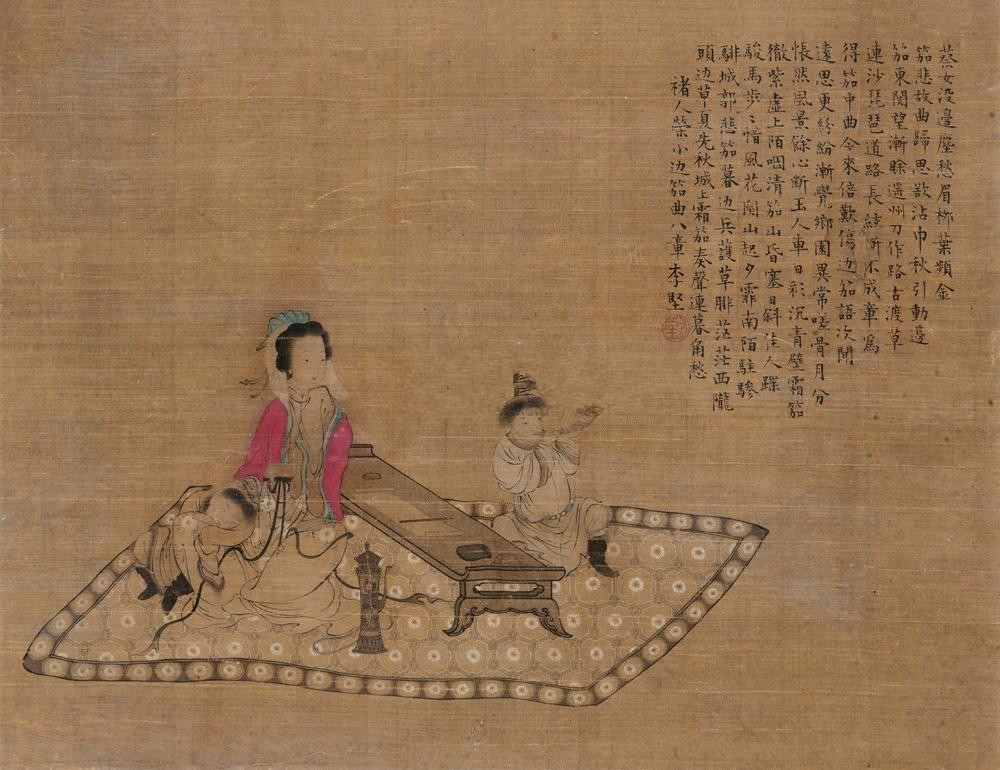 蔡女没邊塵愁眉柳葉顰金
笳悲故曲歸思欲沾巾秋引動邊
笳東関望漸賒遥州刀作路古渡草
連沙琵琶道路長絃訴不成章爲
得笳中曲令來倍歎傷边笳語次聞
遠思更紛紛漸覺鄉園異常嗟骨月分
悵然風景餘心斷玉人車日彩沉青壁霜笳
徹紫虚上陌咽清笳山昏塞日斜佳人蹀
駿馬步〻惜風花関山起夕霏南陌駐驂
騑城郭悲笳暮边兵護草腓茫茫西隴
頭边草夏先秋城上霜笳奏聲連暮角愁
褚人榮小边笳曲八章李堅